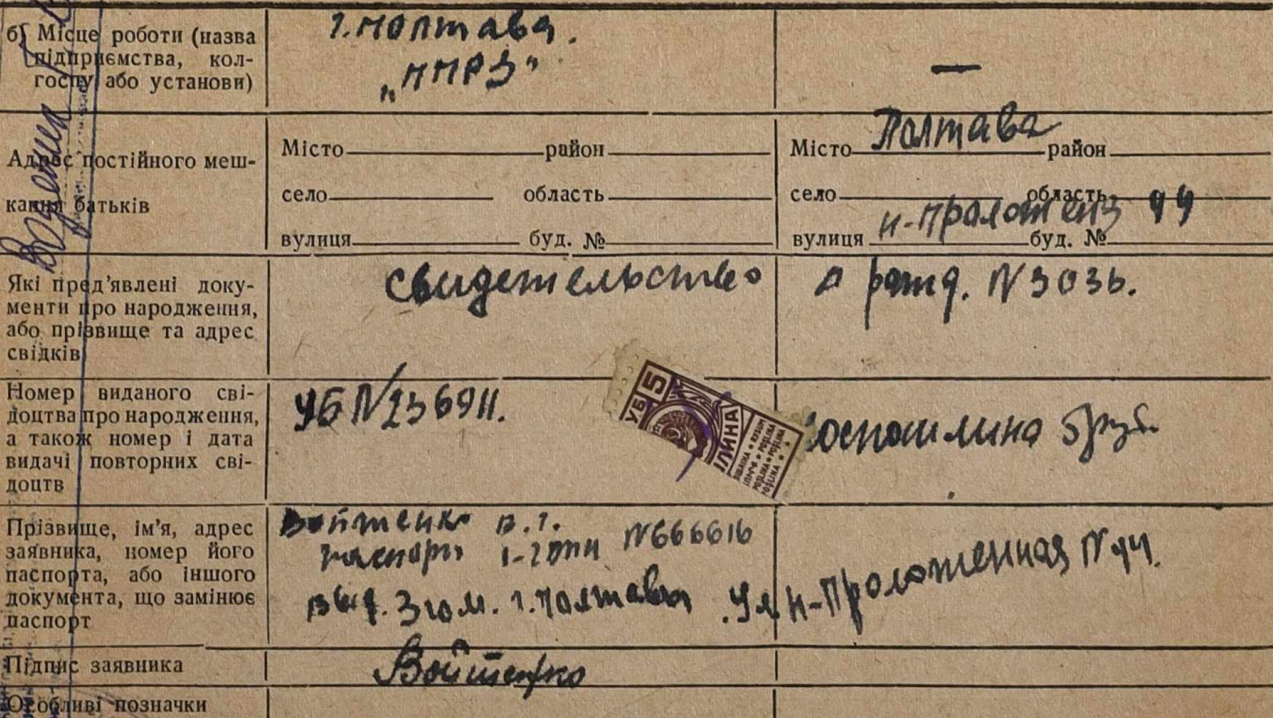 б) Місце роботи (назва
підприємства, кол-
госпу або установи)
г. Полтава.
„ППРЗ"
—
Адрес постійного меш-
кання батьків
Місто район
село область
вулиця буд. №
Місто Полтава район
село область
вулиця н-проложеня 94 буд. №
Які пред'явлені доку-
менти про народження,
або прізвище та адрес
свідків
свидетельство о рожд. N 3036.
Номер виданого сві-
доцтва про народження,
а також номер і дата
видачі повторних сві-
доцтв
УБ N 236911.
УБ 5
Госпошлина 5руб.
Прізвище, ім'я, адрес
заявника, номер його
паспорта, або іншого
документа, що замінює
паспорт
Войтенко В. Г.
паспорт N 666616
выд. 3 г о.м. г. Полтава. Ул. Н-Проложенная N 94.
Підпис заявника
Войтенко
Особливі позначки